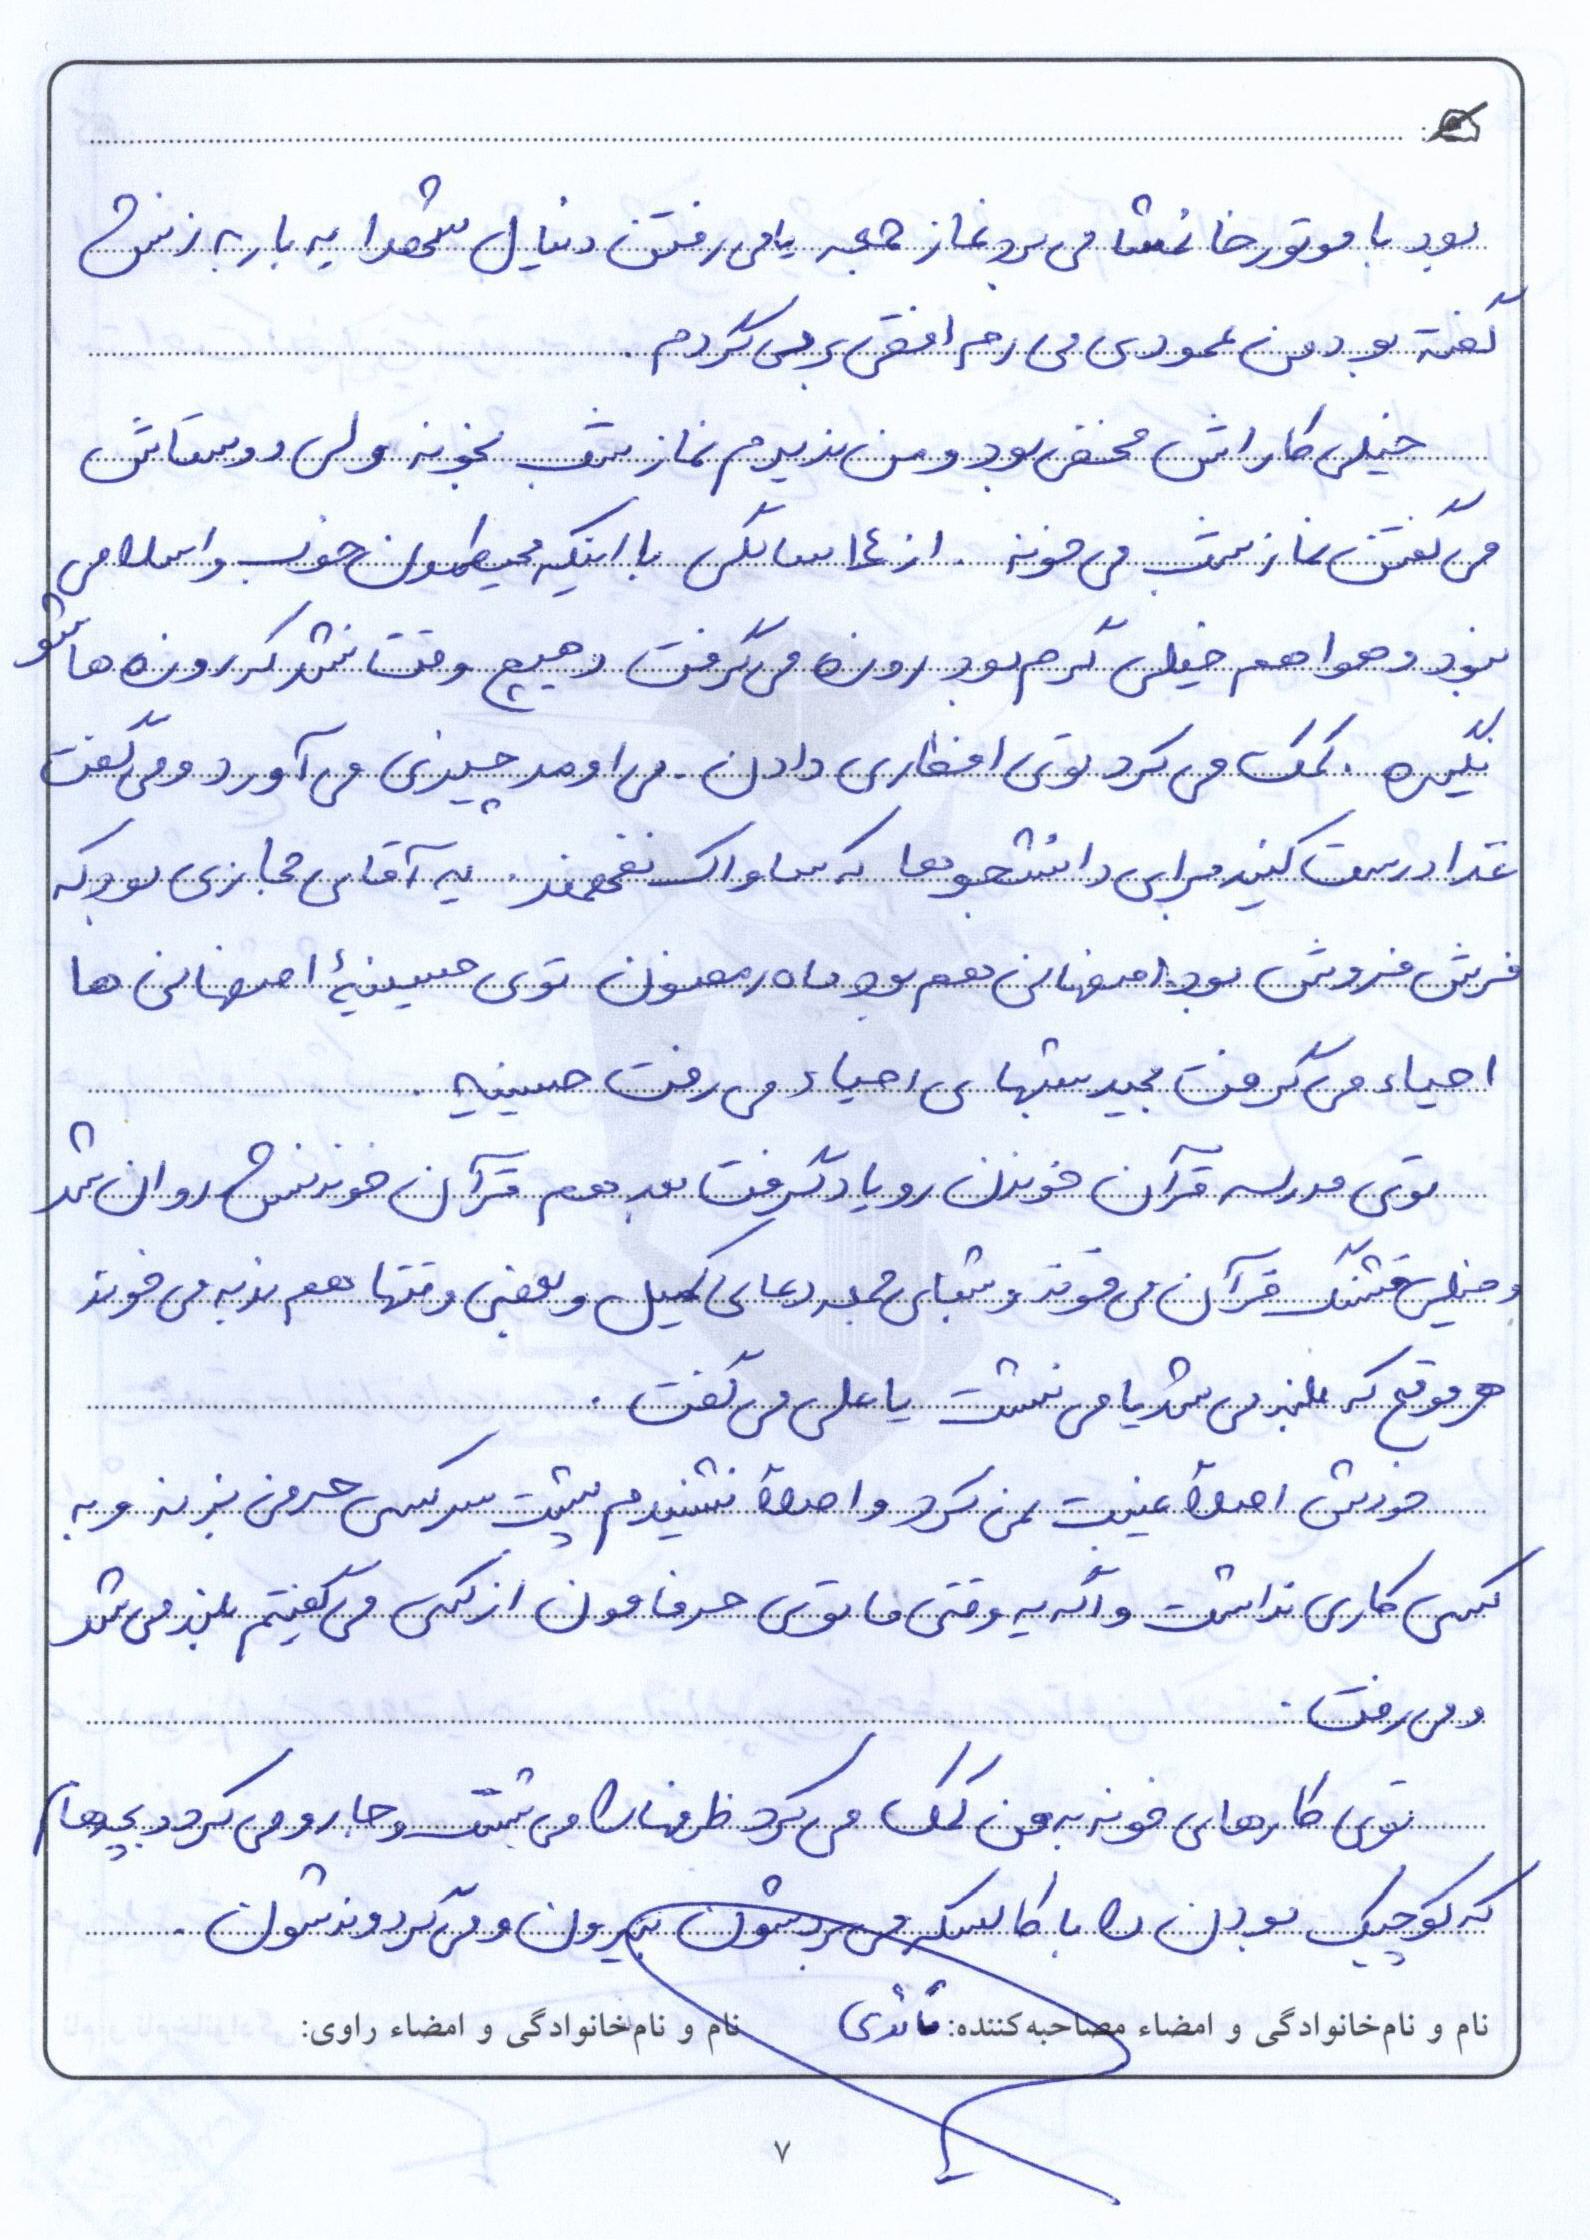 بود با موتور خانمشا می برد نماز جمعه یا می رفتن دنبال شهدا یه بار به زنش
گفته بود من عمودی می رم افقی برمی گردم .
خیلی کاراش مخفی بود و من ندیدم نماز شب بخونه ولی دوستاش
می گفتن نماز شب می خونه . از ۱۴ سالگی با اینکه محیطمون خوب و اسلامی
نبود و هوا هم خیلی گرم بود روزه می گرفت و هیچ وقت نشد که روزه هاشو
نگیره . کمک می کرد توی افطاری دادن . می اومد چیزی می آورد و می گفت
غذا درست کنید برای دانشجوها که ساواک نفهمند . یه آقای مجازی بود که
فرش فروش بود . اصفهانی هم بود ماه رمضون توی حسینیۀ اصفهانی ها
احیاء می گرفت مجید شبهای احیاء می رفت حسینیه .
توی مدرسه قرآن خوندن رو یاد گرفت بعد هم قرآن خوندنش روان شد
و خیلی قشنگ قرآن می خوند و شبای جمعه دعای کمیل و بعضی وقتها هم ندبه می خوند
هر موقع که بلند می شد یا می نشست یا علی می گفت .
خودش اصلاً غیبت نمی کرد و اصلاً نشنیدم پشت سر کسی حرفی بزنه و به
کسی کاری نداشت و اگه یه وقتی ما توی حرفامون از کسی می گفتیم بلند می شد
و می رفت .
توی کارهای خونه به من کمک می کرد ظرفها را می شست و جارو می کرد و بچه هام
که کوچیک بودن را با کالسکه می بردشون بیرون و می گردوندشون .
نام و نام‌خانوادگی و امضاء مصاحبه‌کننده:
نام و نام‌خانوادگی و امضاء راوی:
۷